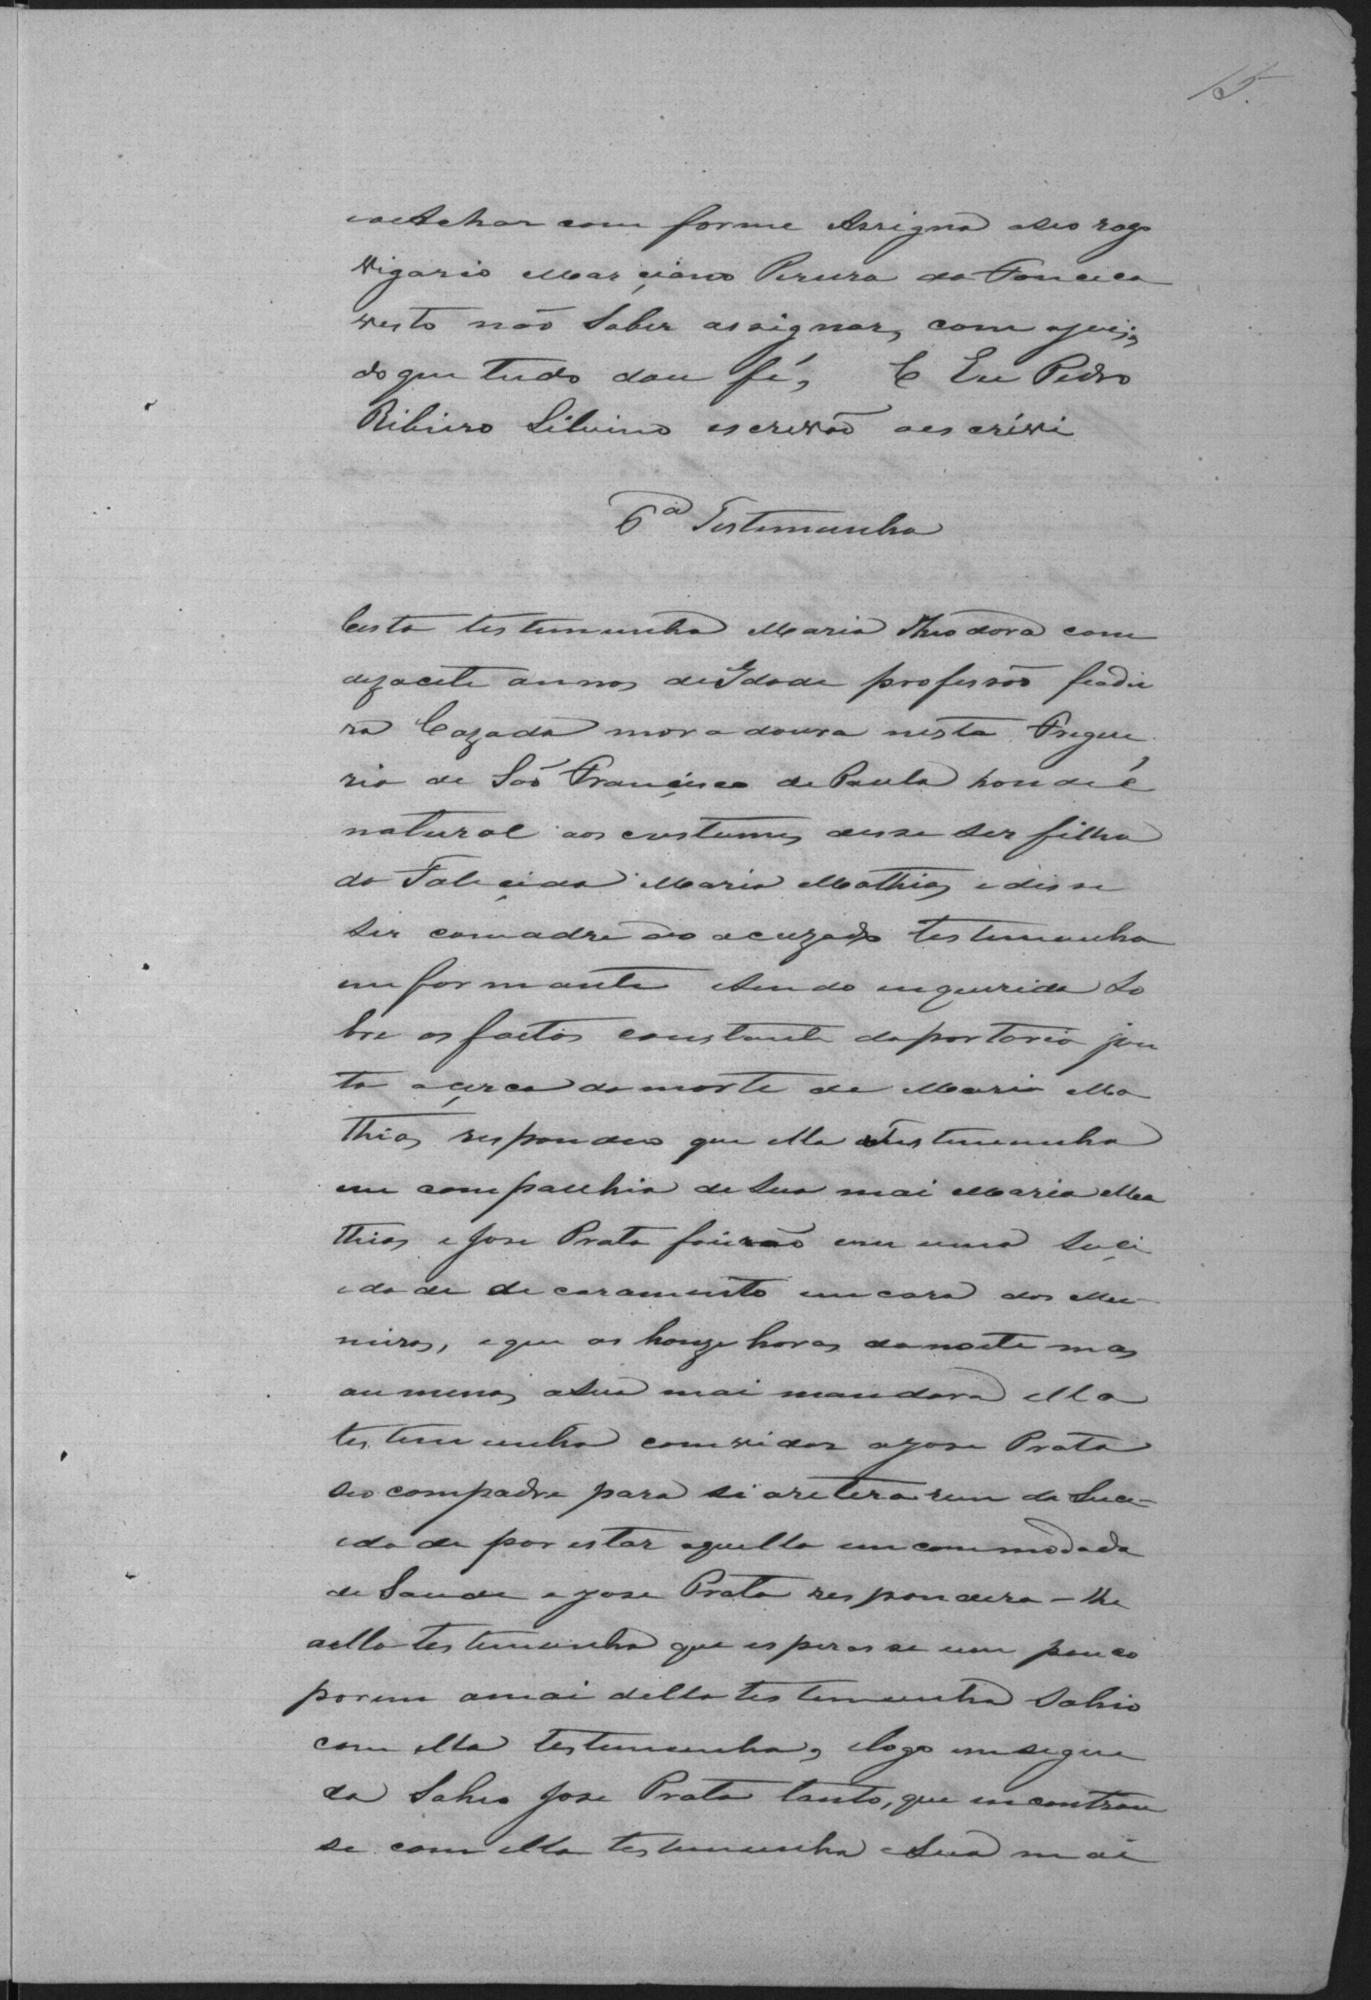 15.
e o achar com forme Assigna a seo rogo
Vigario Marçiano Perera da Fonceca
visto não Saber assignar, com o juis,
do que tudo dou fé, E Eu Pedro
Ribiero Silvino escrivão o escrivi
6ª Testemunha
Esta testemunha Maria Theodora com
dezacete annos de Ydade professão fiadie
ra Cazada moradoura nesta Fregue
sia de São Françisco de Paula honde é
natural aos custumes disse ser filha
da Faleçida Maria Mathias e disse
ser comadre do acuzado testemunha
imformante Sendo inquerida So
bre os factos constante da portaria jun
ta açerca da morte de Maria Ma
thias respondeo que ella Testemunha
em companhia de Sua mai Maria Ma
thias e Jose Prata foirão em uma Suçi
edade de casamento em casa dos Mu
niros, e que as honze horas da noite mas
au menos a Sua mai mandara ella
testemunha comvidar a Jose Prata
seo compadre para si aretirarem da Suce-
edade por estar aquella emcommodada
de Saude e Jose Prata respondera-lhe
a ella testemunha que esperasse um pouco
porem a mai della testemunha Sahio
com ella testemunha, e logo em segue
da Sahio Jose Prata tanto, que encontrou
se com ella testemunha e Sua mai